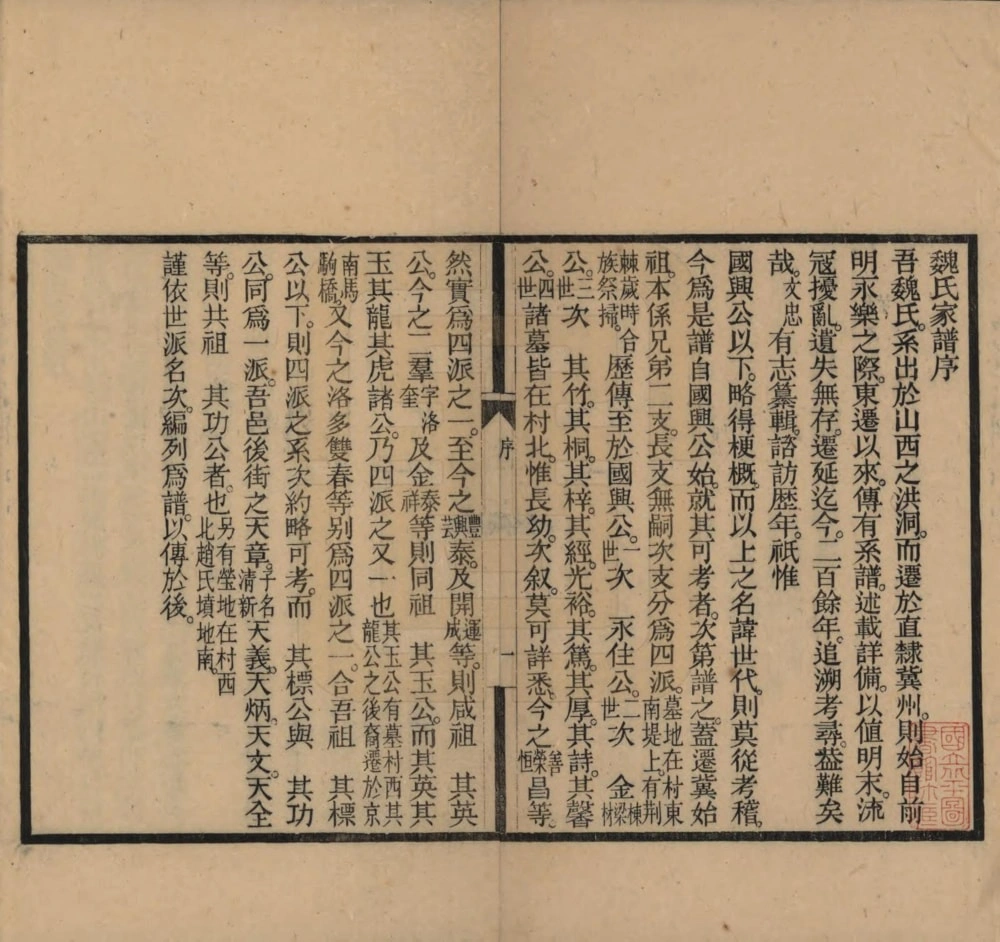 魏氏家譜序
吾魏氏。系出於山西之洪洞。而遷於直隸冀州。則始自前
明永樂之際。東遷以來。傳有系譜。述載詳備。以值明末流
寇擾亂。遺失無存。遷延迄今。二百餘年。追溯考尋。葢難矣
哉。文忠有志纂輯。諮訪歷年。祇惟
國興公以下。略得梗概。而以上之名諱世代。則莫從考稽。
今爲是譜自國興公始。就其可考者。次第譜之。蓋遷冀始
祖。本係兄第二支。長支無嗣。次支分爲四派。墓地在村東南堤上。有荆
棘歲時合族祭掃。歷傳至於國興公。一世次 永住公。二世次 金棟梁材
公。三世次 其竹。其桐。其梓。其經。光裕。其篤。其厚。其詩。其馨
公。四世諸墓皆在村北。惟長幼。次叙。莫可詳悉。今之善榮恒昌等。
序
一
然實爲四派之一。至今之豐興芸泰。及開運成等。則咸祖 其英
公。今之二羣字洛奎及金泰祥等則同祖 其玉公。而其英其
玉其龍其虎諸公。乃四派之又一也其玉公有墓村西其龍公之後裔遷於京
南馬駒橋。又今之洛多雙春等别爲四派之一。合吾祖 其標
公以下。則四派之系次約略可考。而 其標公與 其功
公。同爲一派。吾邑後街之天章。子名清新天義。天炳。天文。天全
等。則共祖 其功公者。也另有塋地在村西北趙氏墳地南。
謹依世派名次。編列爲譜。以傳於後。